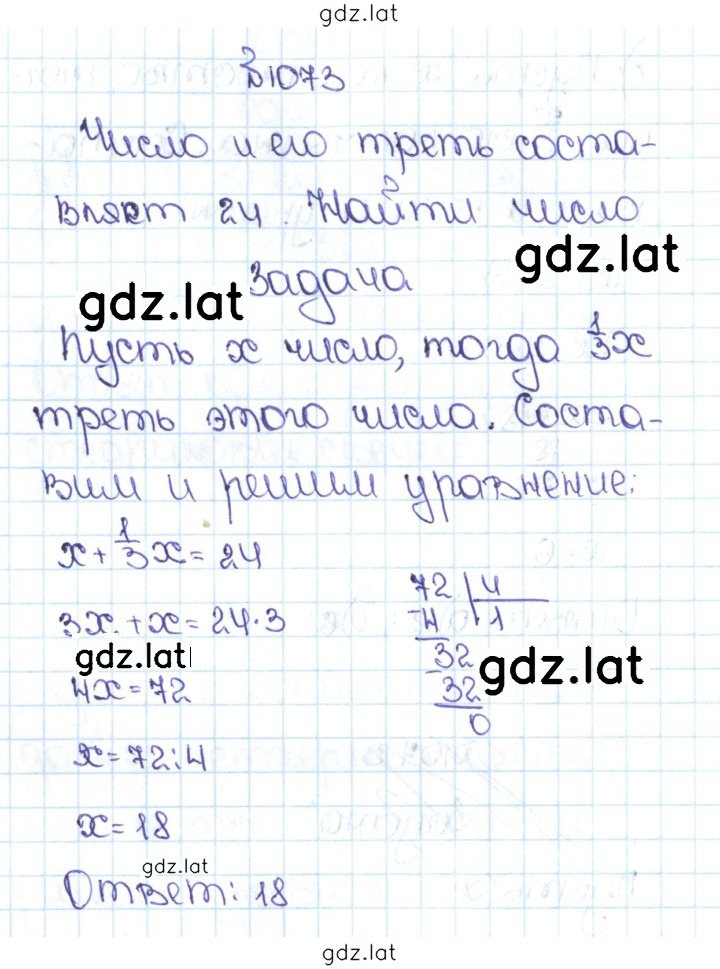 gdz.lat
№1073
Число и его треть соста-
вляет 24. Найти число
gdz.lat
gdz.lat
Задача
Пусть x число, тогда 1/3 x
треть этого числа. Соста-
вим и решим уравнение:
x + 1/3 x = 24
3x + x = 24·3
gdz.lat
4x = 72
x = 72:4
x = 18
72 | 4
-4 | 1
32
-32
0
gdz.lat
gdz.lat
Ответ: 18
gdz.lat